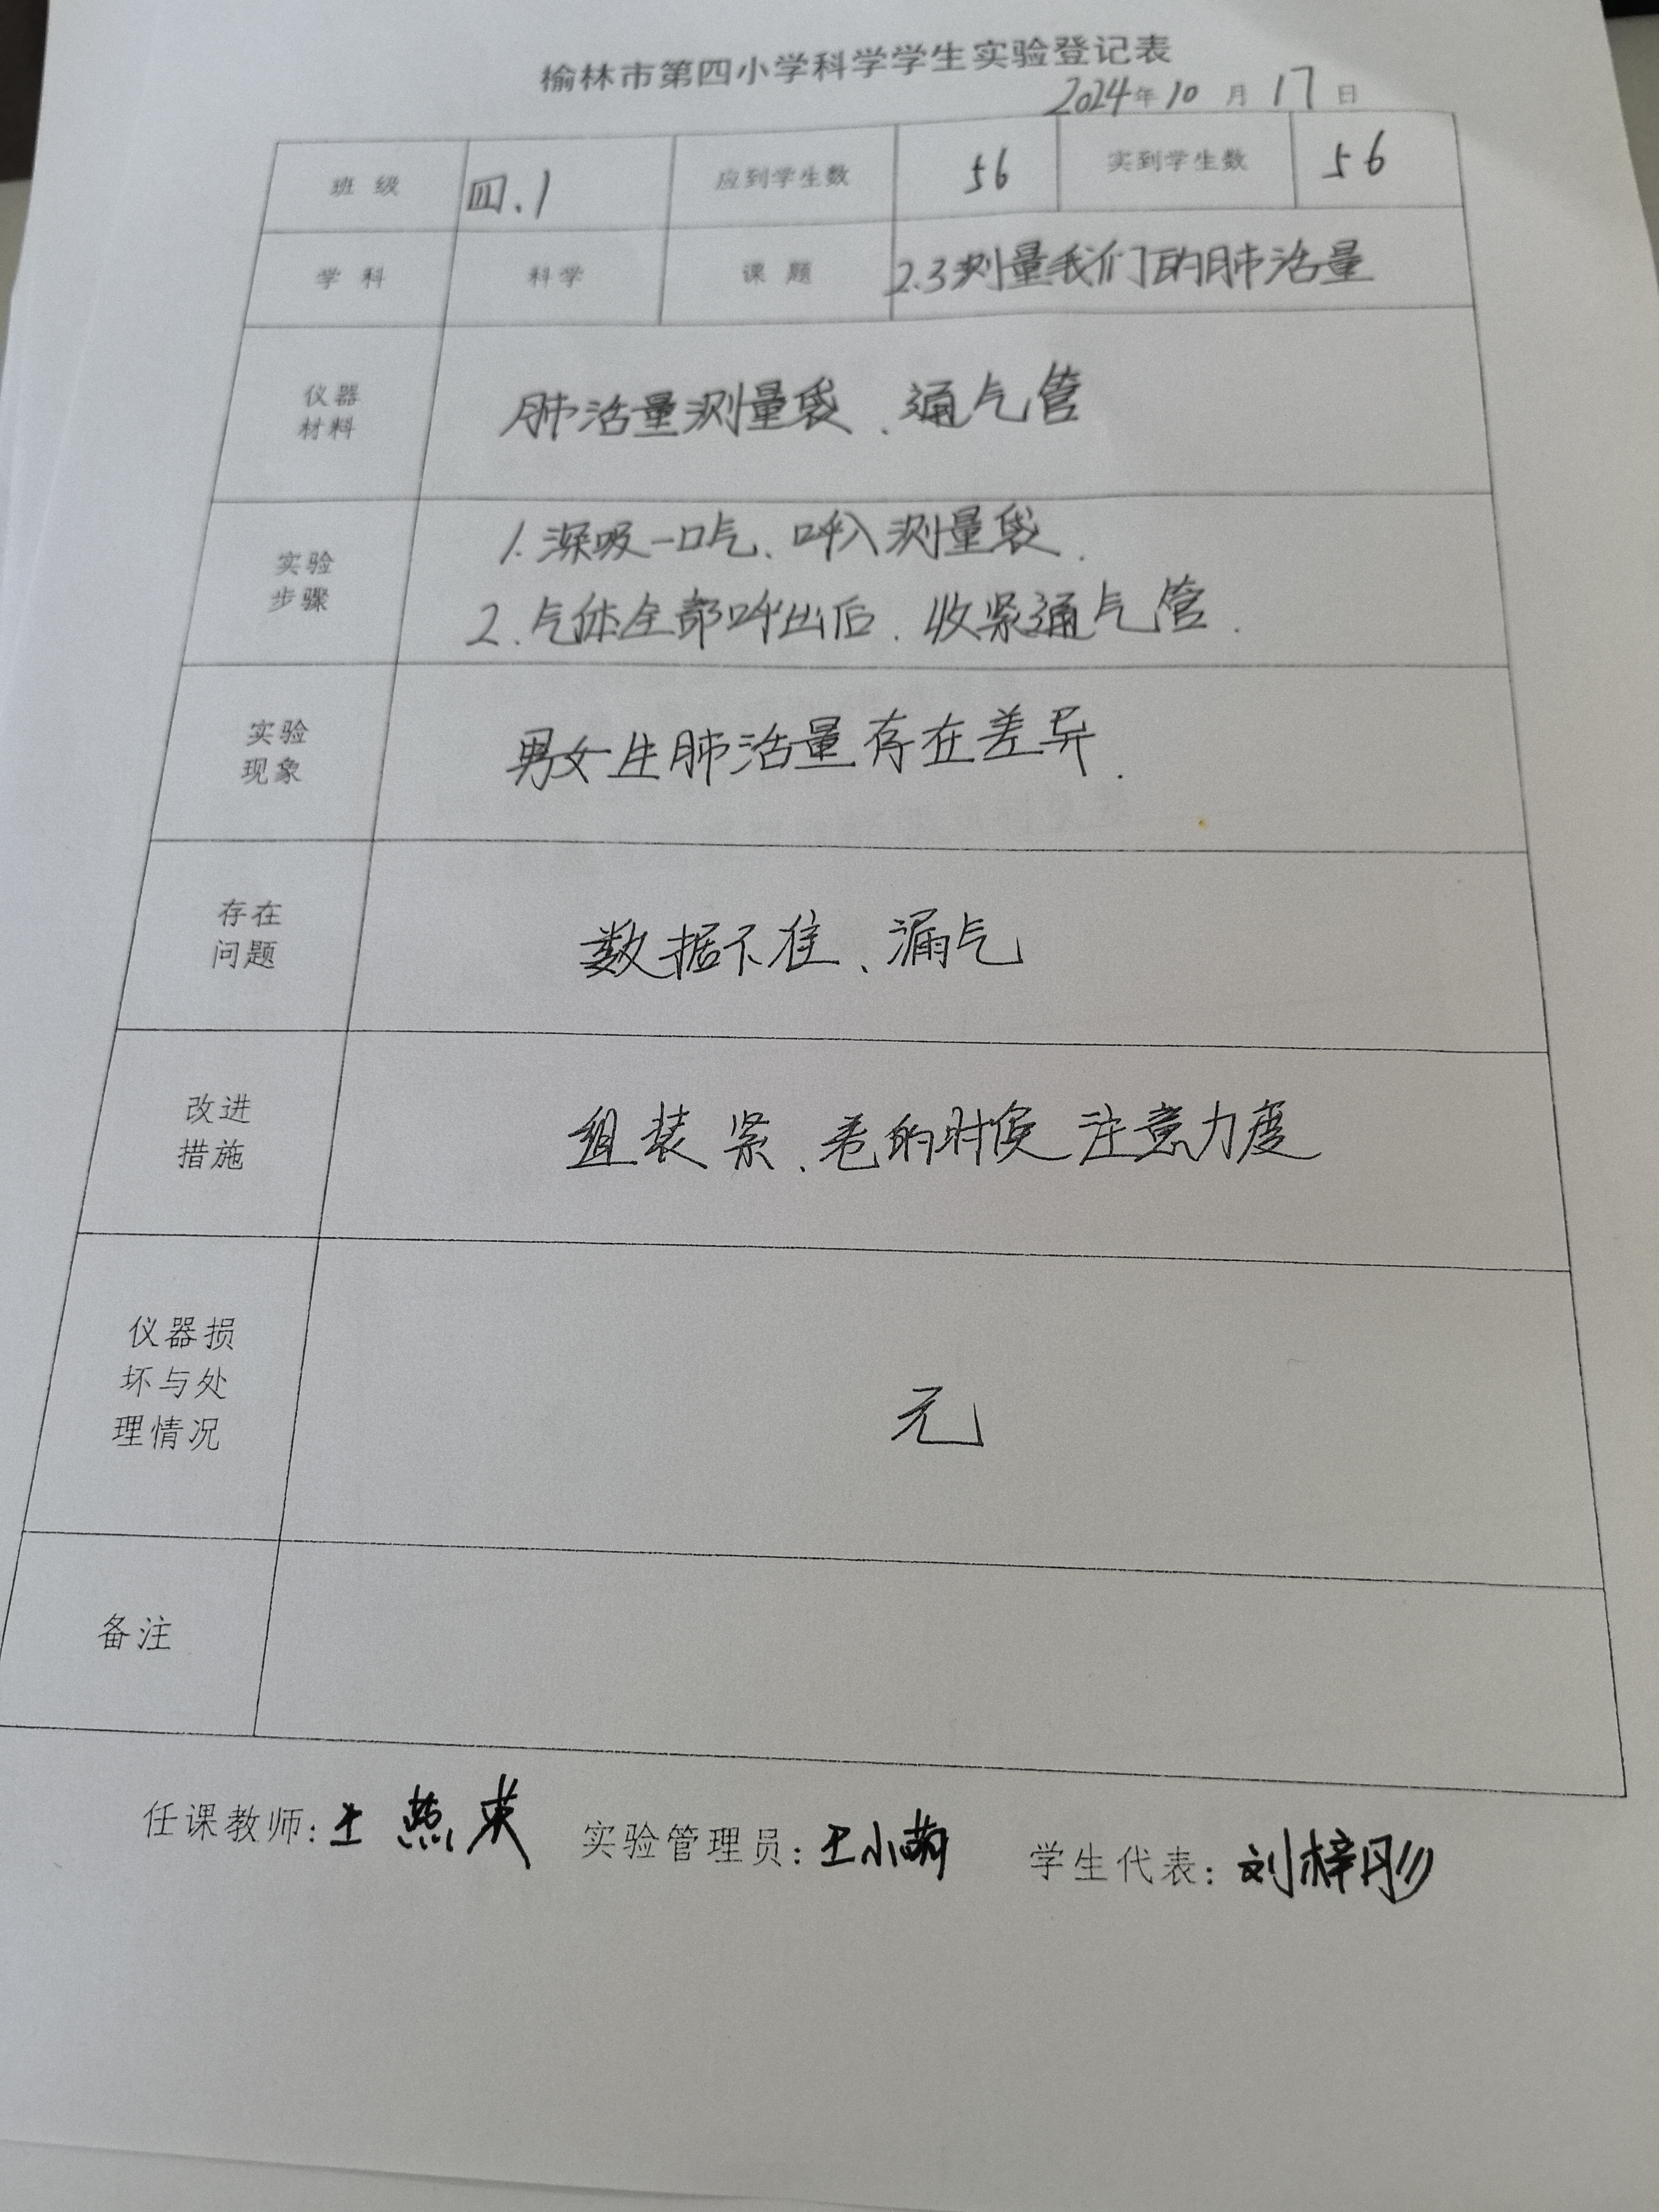 榆林市第四小学科学学生实验登记表
2024年10月17日
班级 四.1 应到学生数 56 实到学生数 56
学科 科学 课题 2.3测量我们的肺活量
仪器
材料
肺活量测量袋、通气管
实验
步骤
1.深吸一口气、呼入测量袋.
2.气体全部呼出后.收紧通气管.
实验
现象
男女生肺活量存在差异.
存在
问题
数据不准、漏气
改进
措施
组装紧、卷的时候注意力度
仪器损
坏与处
理情况
无
备注
任课教师:王燕英 实验管理员:王小萌 学生代表:刘梓彤